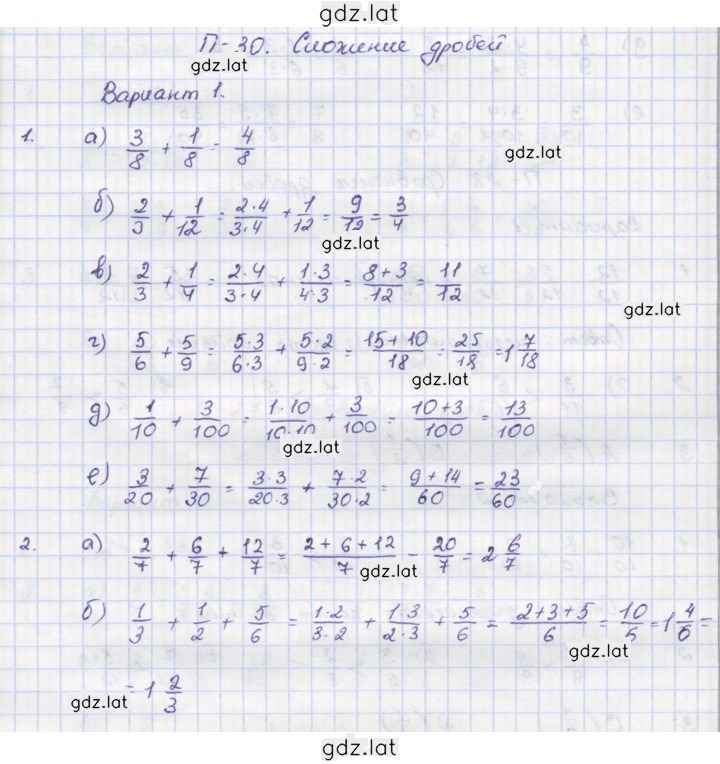 gdz.lat
П-30. Сложение дробей
gdz.lat
Вариант 1.
1. а) 3/8 + 1/8 = 4/8
gdz.lat
б) 2/3 + 1/12 = 2·4/3·4 + 1/12 = 9/12 = 3/4
gdz.lat
в) 2/3 + 1/4 = 2·4/3·4 + 1·3/4·3 = 8+3/12 = 11/12
gdz.lat
г) 5/6 + 5/9 = 5·3/6·3 + 5·2/9·2 = 15+10/18 = 25/18 = 1 7/18
gdz.lat
д) 1/10 + 3/100 = 1·10/10·10 + 3/100 = 10+3/100 = 13/100
gdz.lat
е) 3/20 + 7/30 = 3·3/20·3 + 7·2/30·2 = 9+14/60 = 23/60
2. а) 2/7 + 6/7 + 12/7 = 2+6+12/7 = 20/7 = 2 6/7
gdz.lat
б) 1/3 + 1/2 + 5/6 = 1·2/3·2 + 1·3/2·3 + 5/6 = 2+3+5/6 = 10/6 = 1 4/6 =
gdz.lat
= 1 2/3
gdz.lat
gdz.lat